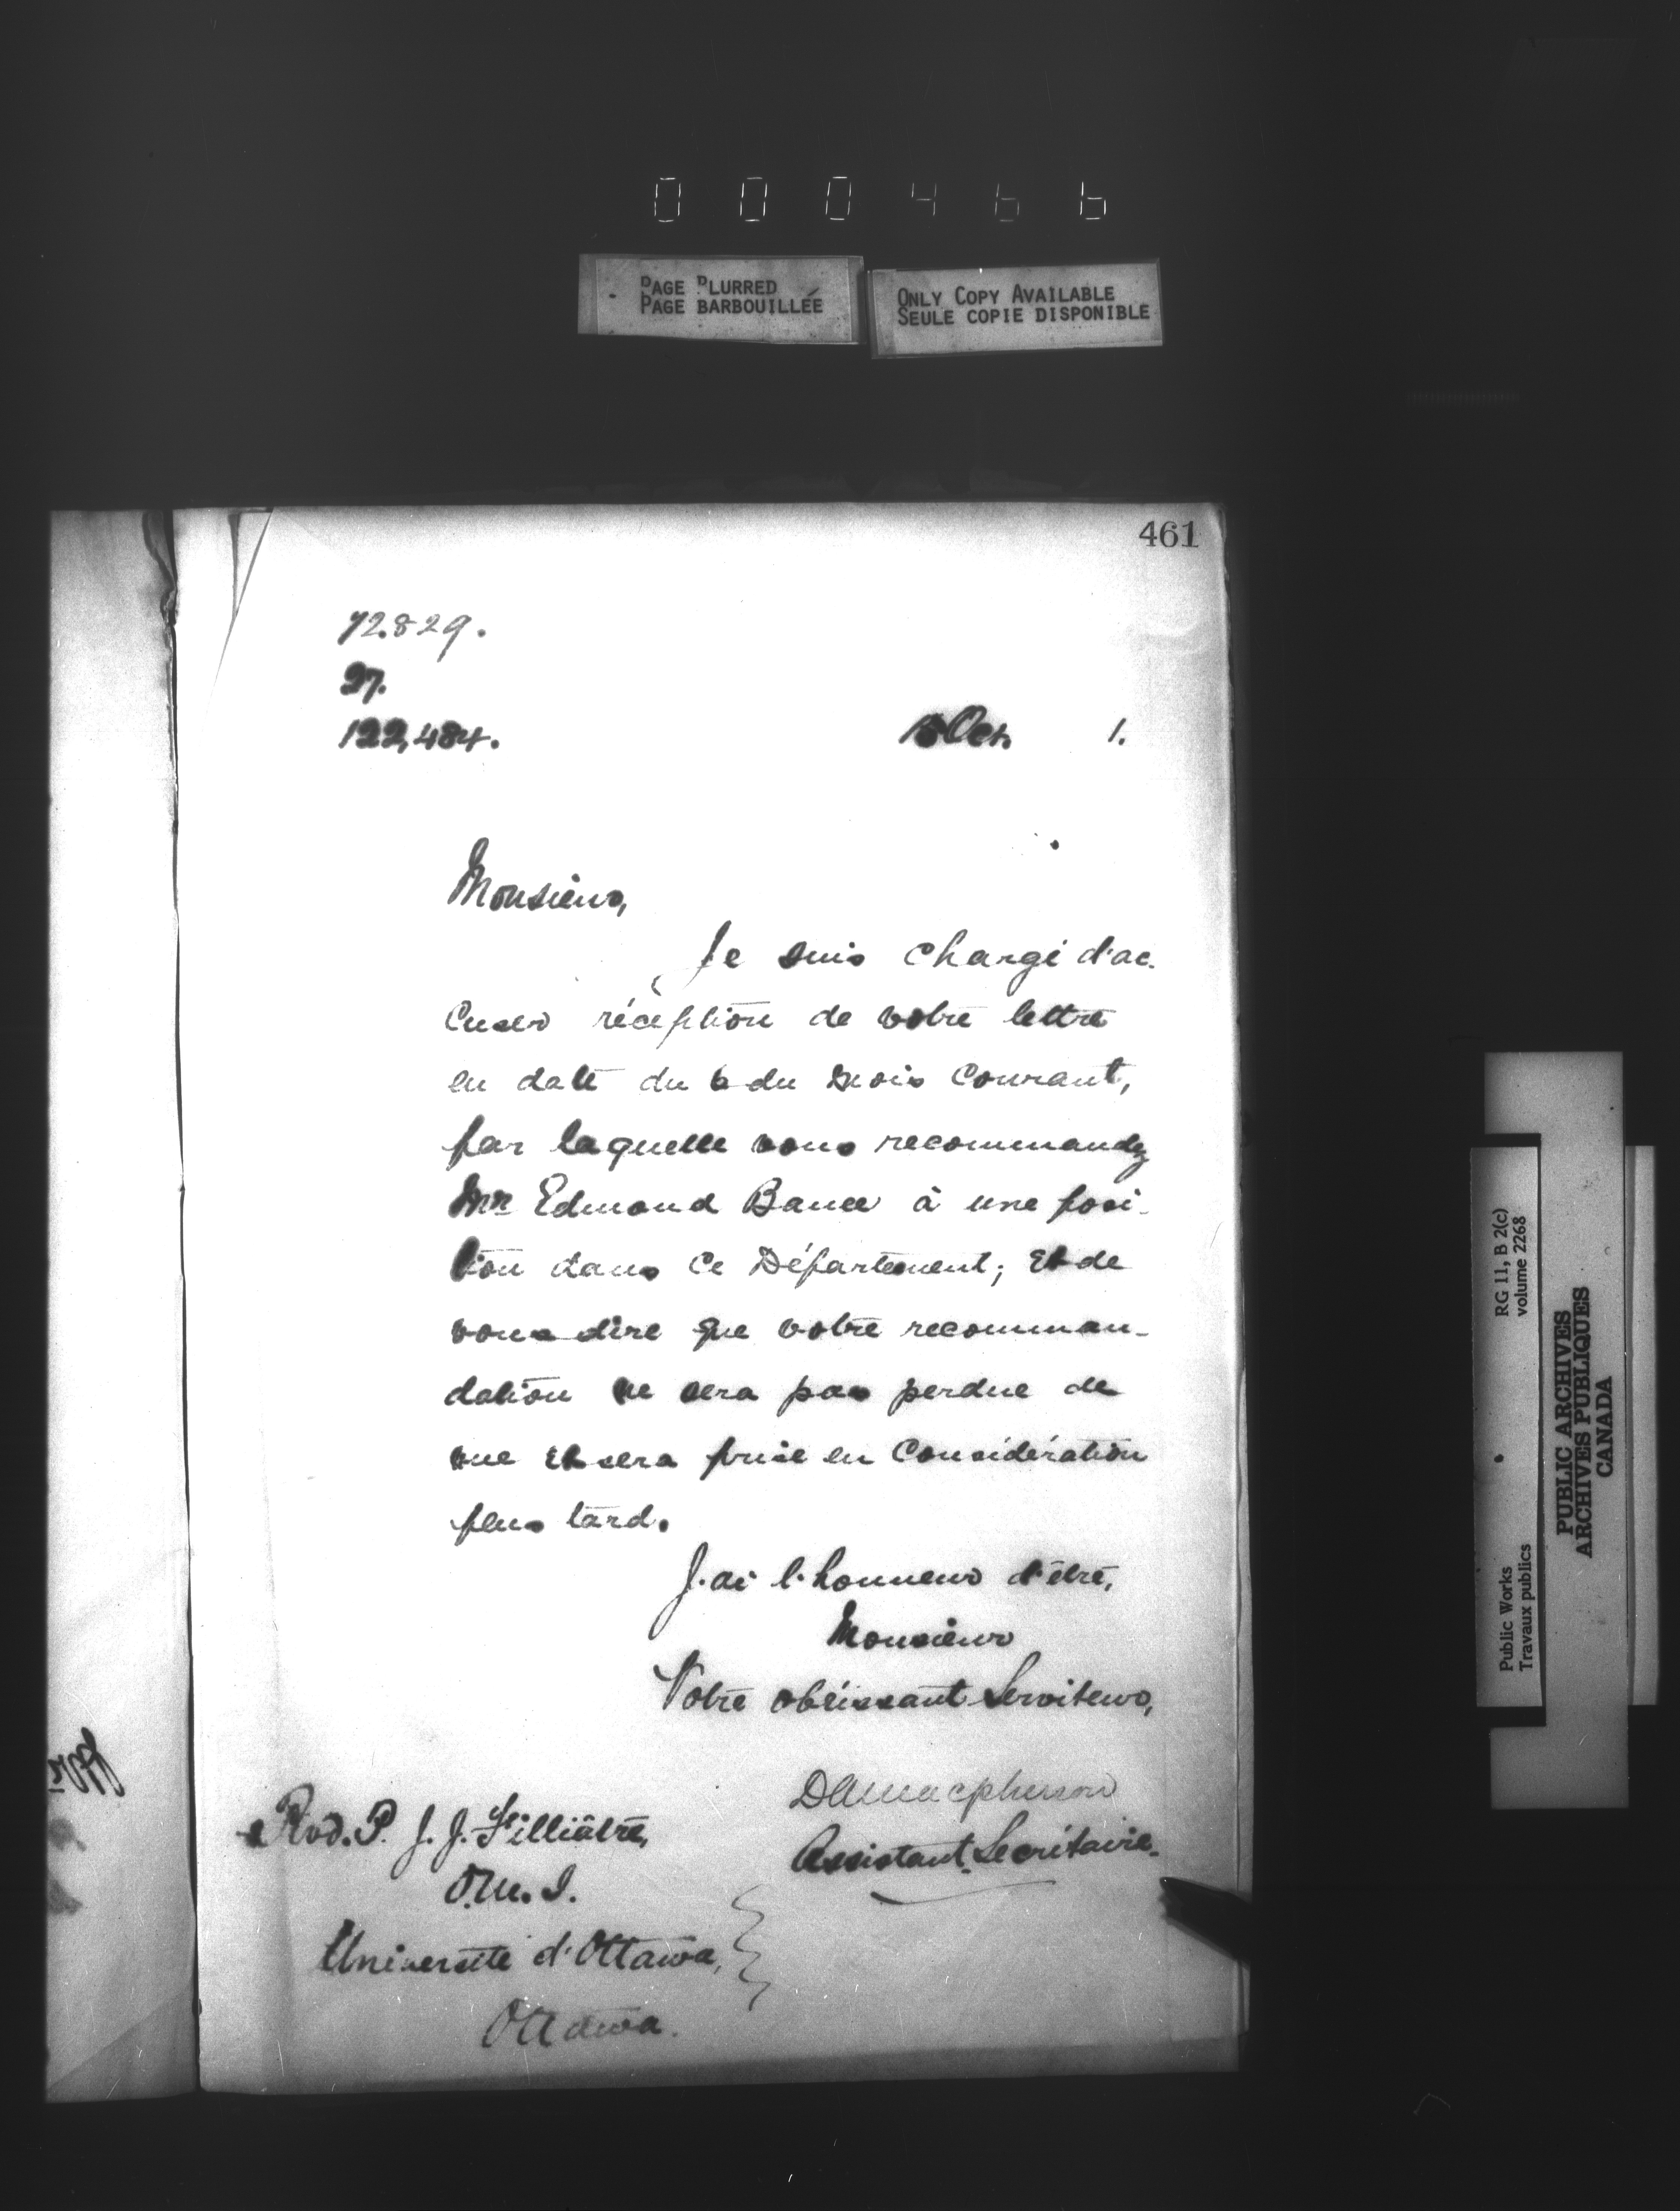 000466
PAGE BLURRED
PAGE BARBOUILLÉE
ONLY COPY AVAILABLE
SEULE COPIE DISPONIBLE
461
72.829.
27.
122,484.
15 Oct. 1.
Monsieur,
Je suis chargé d'ac-
cuser réception de votre lettre
en date du 6 du mois courant,
par laquelle vous recommandez
Mr Edmond à une posi-
tion dans ce Département; et de
vous dire que votre recomman-
dation ne sera pas perdue de
vue et sera prise en considération
plus tard.
J'ai l'honneur d'être,
Monsieur
Votre obéissant Serviteur,
D A Macpherson
Assistant-Secrétaire.
Rvd. P. J. J. Filliâtre,
O.M.I.
Université d'Ottawa,
Ottawa.
RG 11, B 2(c)
volume 2268
Public Works
Travaux publics
PUBLIC ARCHIVES
ARCHIVES PUBLIQUES
CANADA